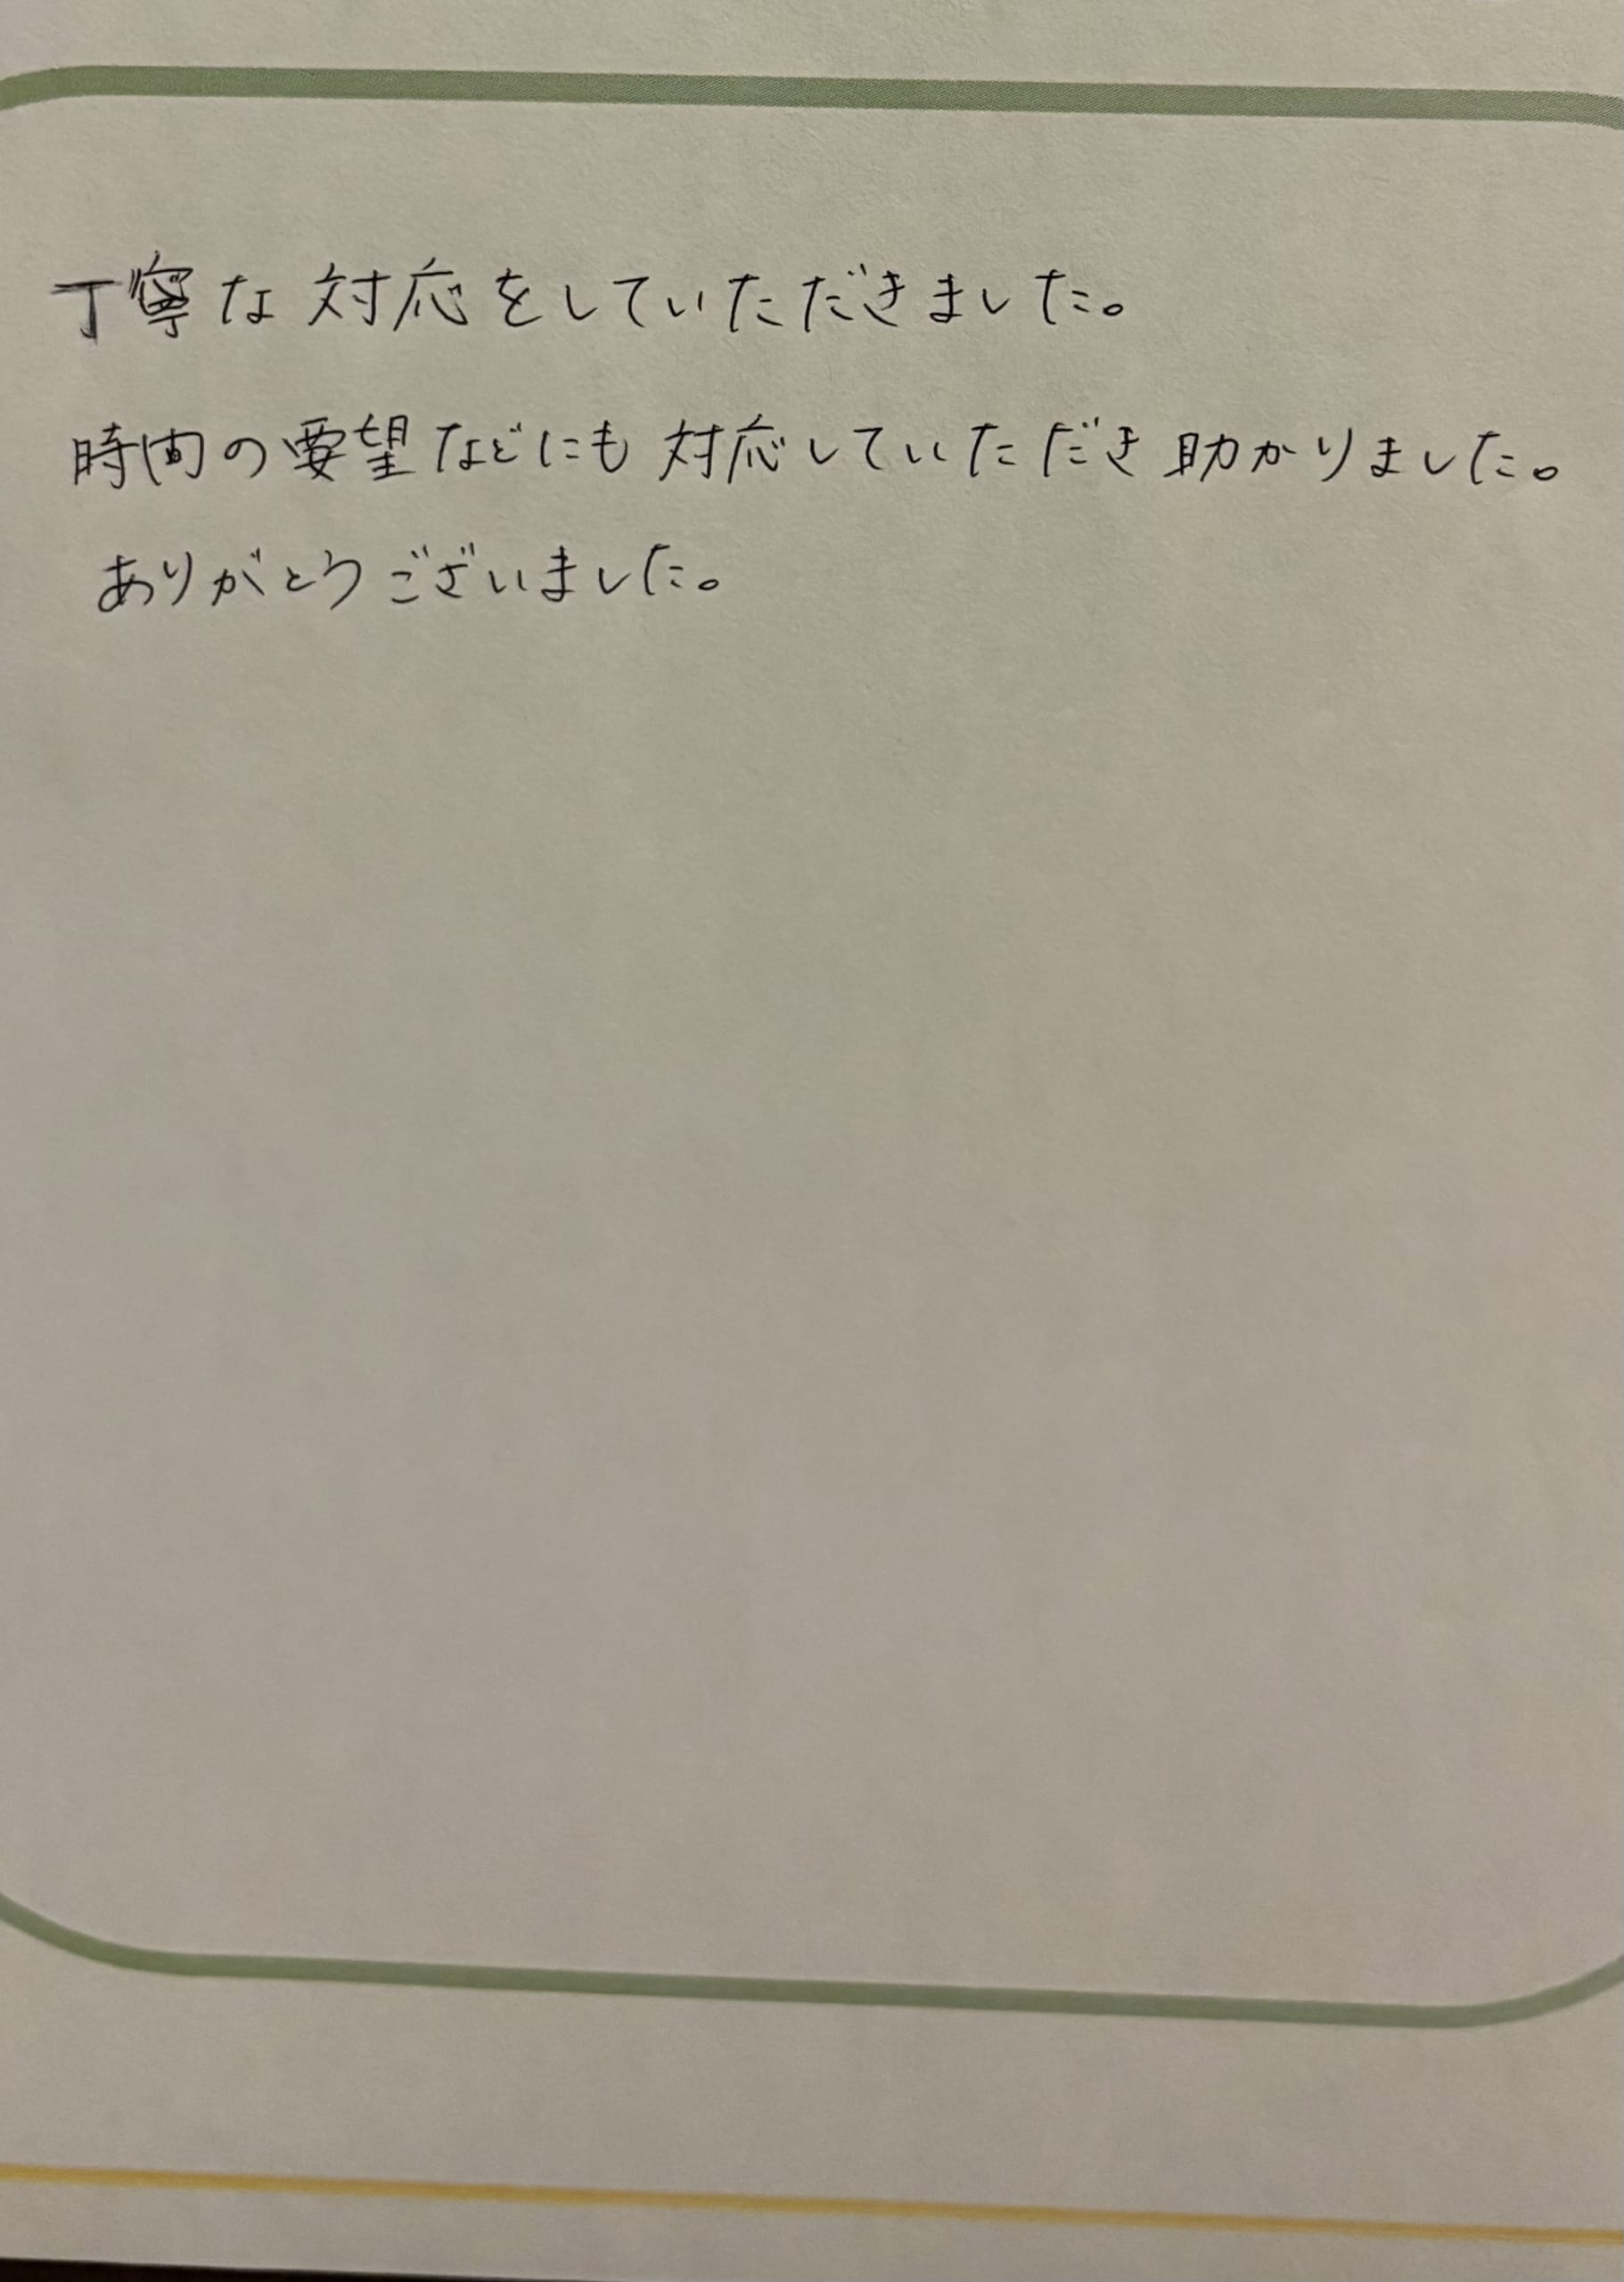 丁寧な対応をしていただきました。
時間の要望などにも対応していただき助かりました。
ありがとうございました。